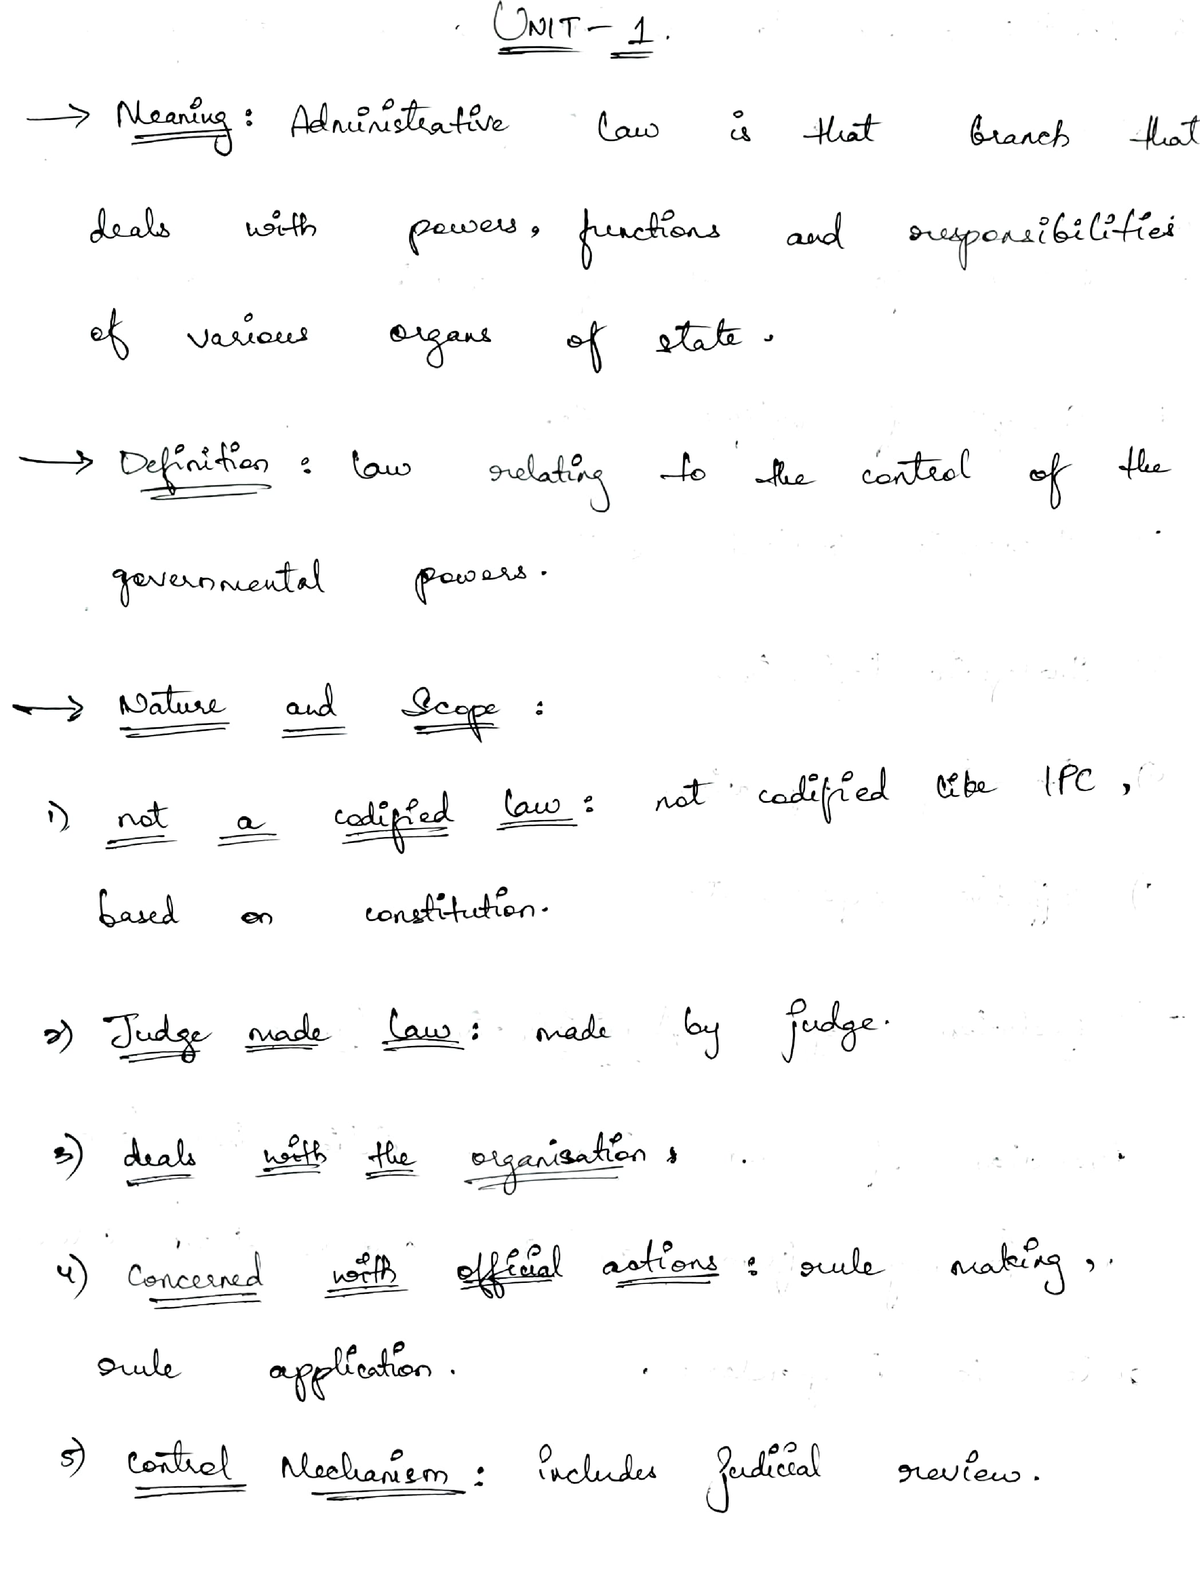 UNIT - 1.
→ Meaning: Administrative law is that branch that
deals with powers, functions and responsibilities
of various organs of state.
→ Definition: law relating to the control of the
governmental powers.
→ Nature and Scope:
1) not a codified law: not codified like IPC,
based on constitution.
2) Judge made law: made by judge.
3) deals with the organisation.
4) Concerned with official actions: rule making,
rule application.
5) Control Mechanism: includes judicial review.